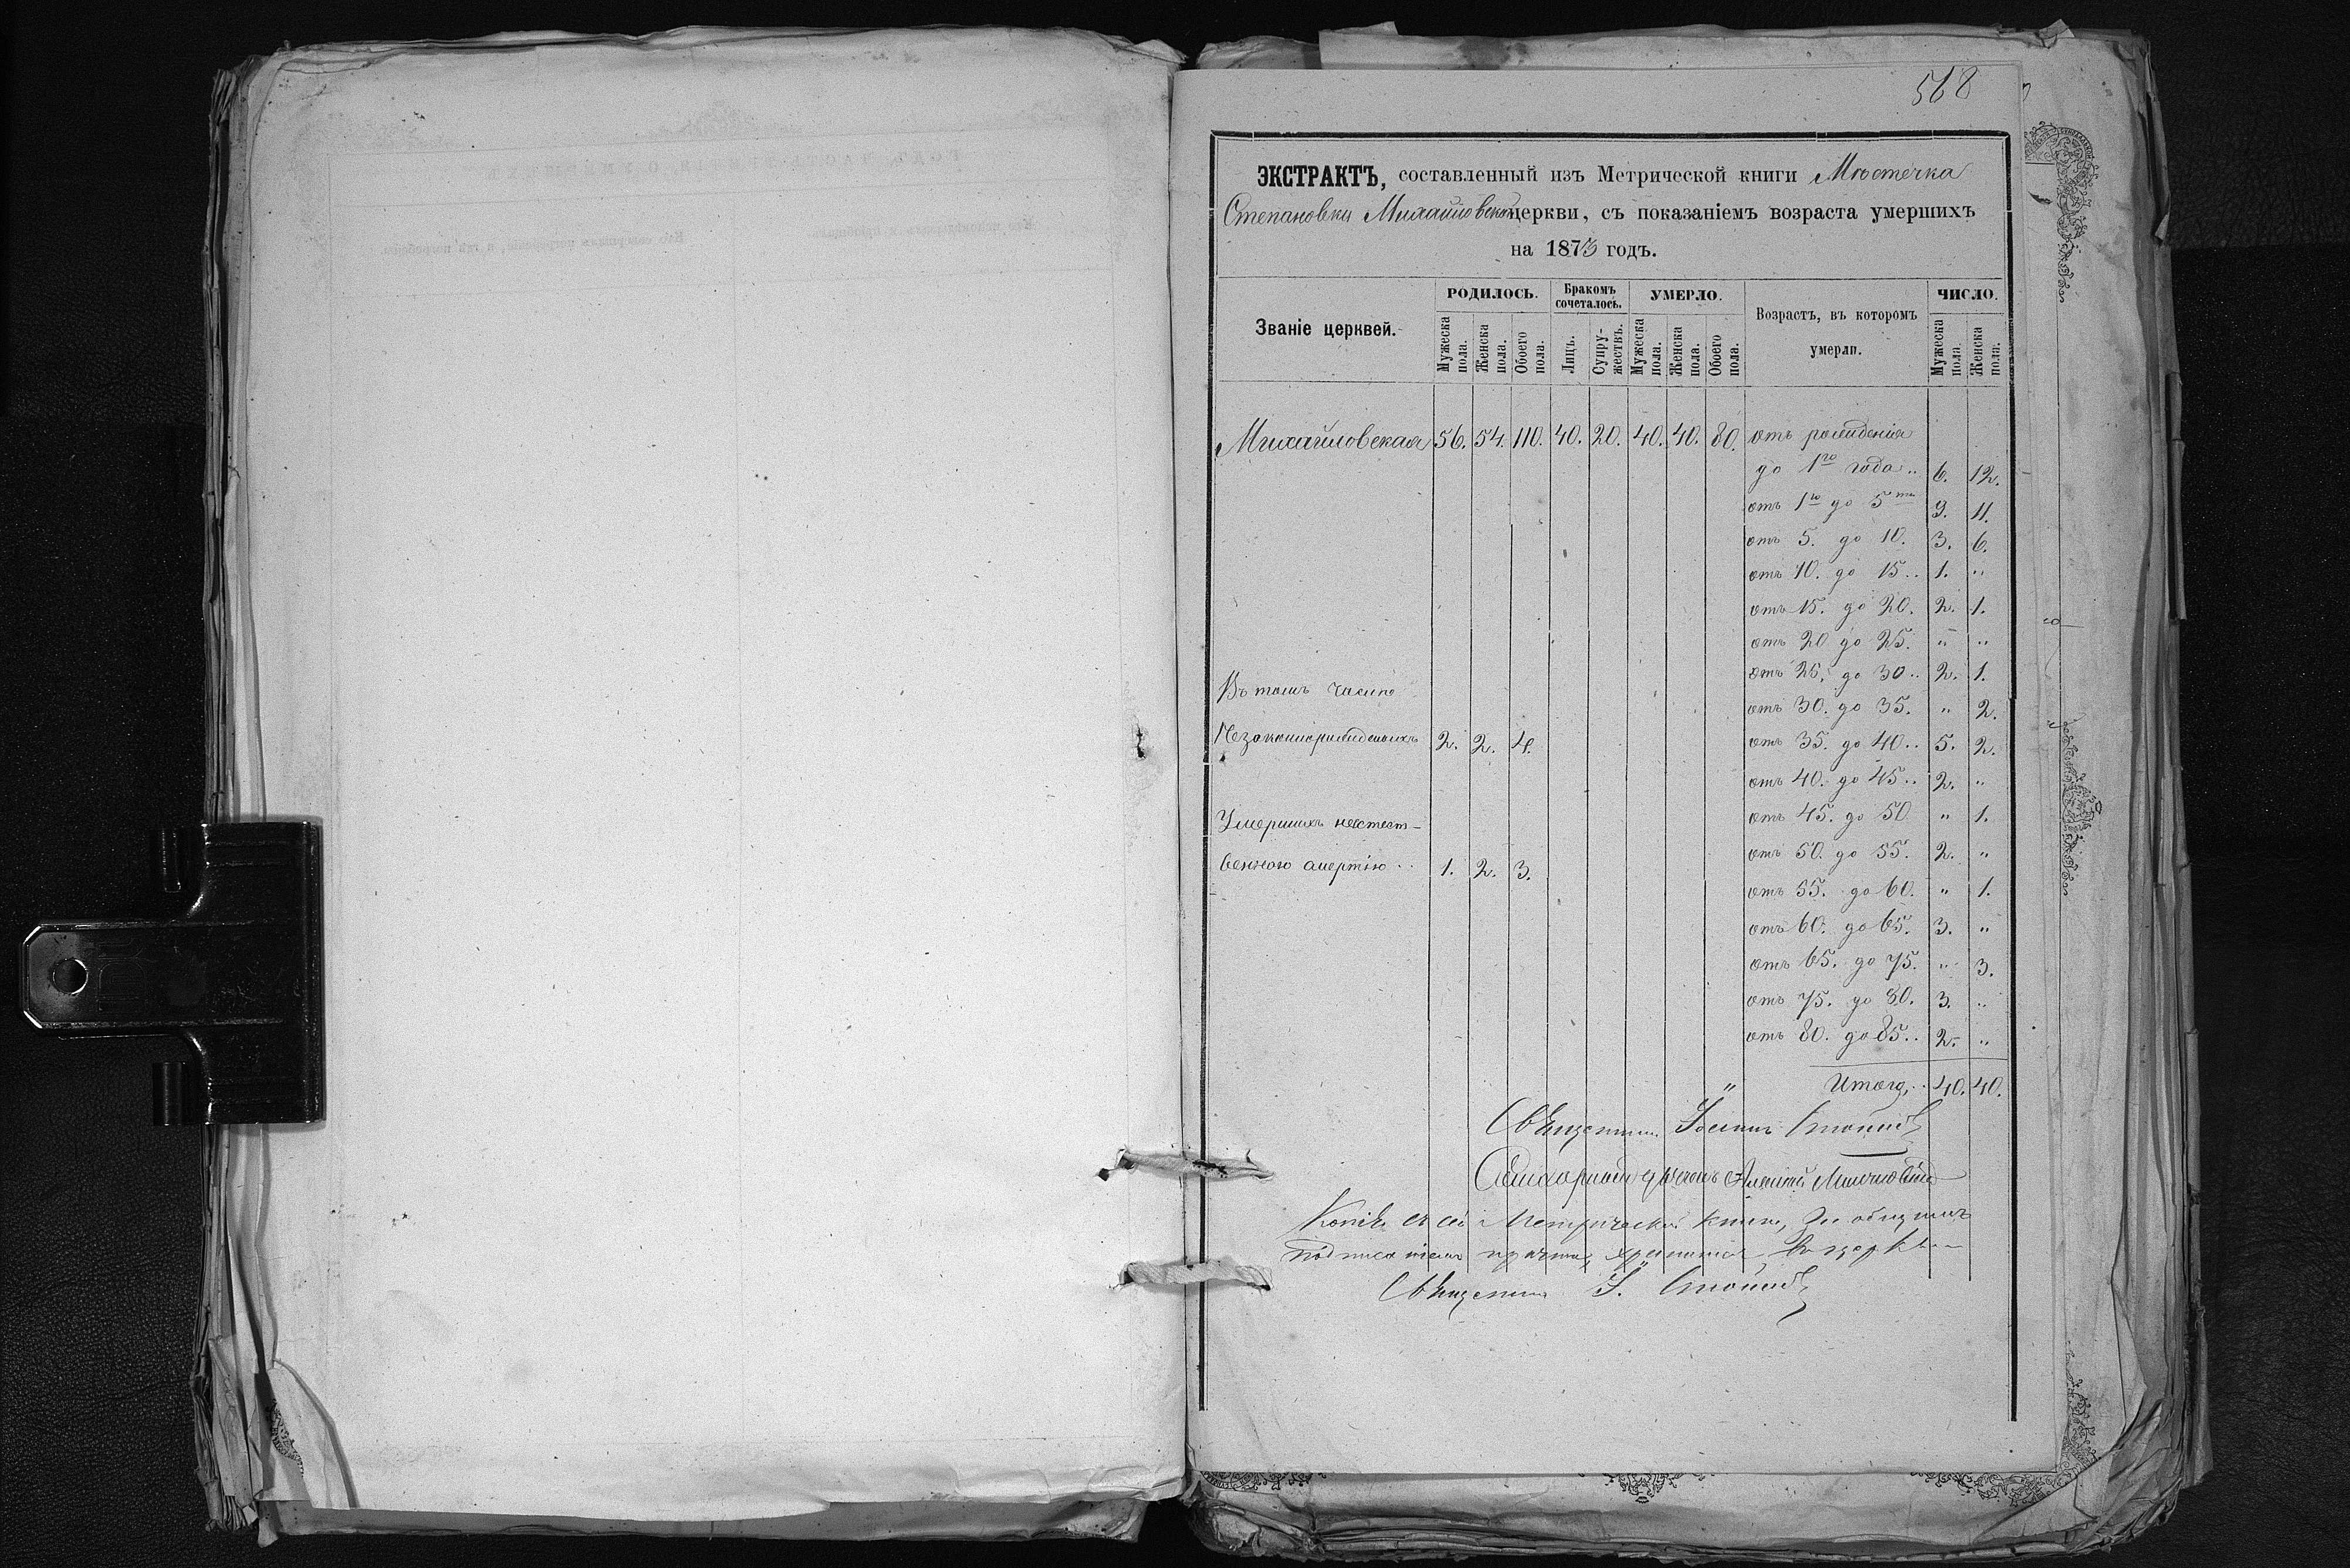 568
ЭКСТРАКТЪ, составленный изъ Метрической книги Мѣстечка
Степановки Михайловской церкви, съ показаніемъ возраста умершихъ
на 1873 годъ.
Званіе церквей. РОДИЛОСЬ. Бракомъ сочеталось. УМЕРЛО. Возрастъ, въ которомъ умерли. ЧИСЛО.
Мужеска пола. Женска пола. Обоего пола. Лицъ. Супружествъ. Мужеска пола. Женска пола. Обоего пола. Мужеска пола. Женска пола.
Михайловская 56. 54. 110. 40. 20. 40. 40. 80. отъ рожденія
до 1го года.. 6. 12.
отъ 1го до 5ти 9. 11.
отъ 5. до 10. 3. 6.
отъ 10. до 15.. 1. "
отъ 15. до 20. 2. 1.
отъ 20 до 25. " "
отъ 25. до 30.. 2. 1.
Въ томъ числѣ
отъ 30. до 35. " 2.
Незаконнорожденныхъ 2. 2. 4. отъ 35. до 40.. 5. 2.
отъ 40. до 45.. 2. "
Умершихъ неестест- отъ 45. до 50 " 1.
венною смертію.. 1. 2. 3. отъ 50. до 55. 2. "
отъ 55. до 60. " 1.
отъ 60. до 65. 3. "
отъ 65. до 75. " 3.
отъ 75. до 80. 3. "
отъ 80. до 85.. 2. "
" Итого.. 40. 40.
Священникъ Іосифъ
дьячокъ Алексѣй
Копія съ сей Метрической книги, за общимъ
подписаніемъ причта, хранится въ церкви
Священникъ І.